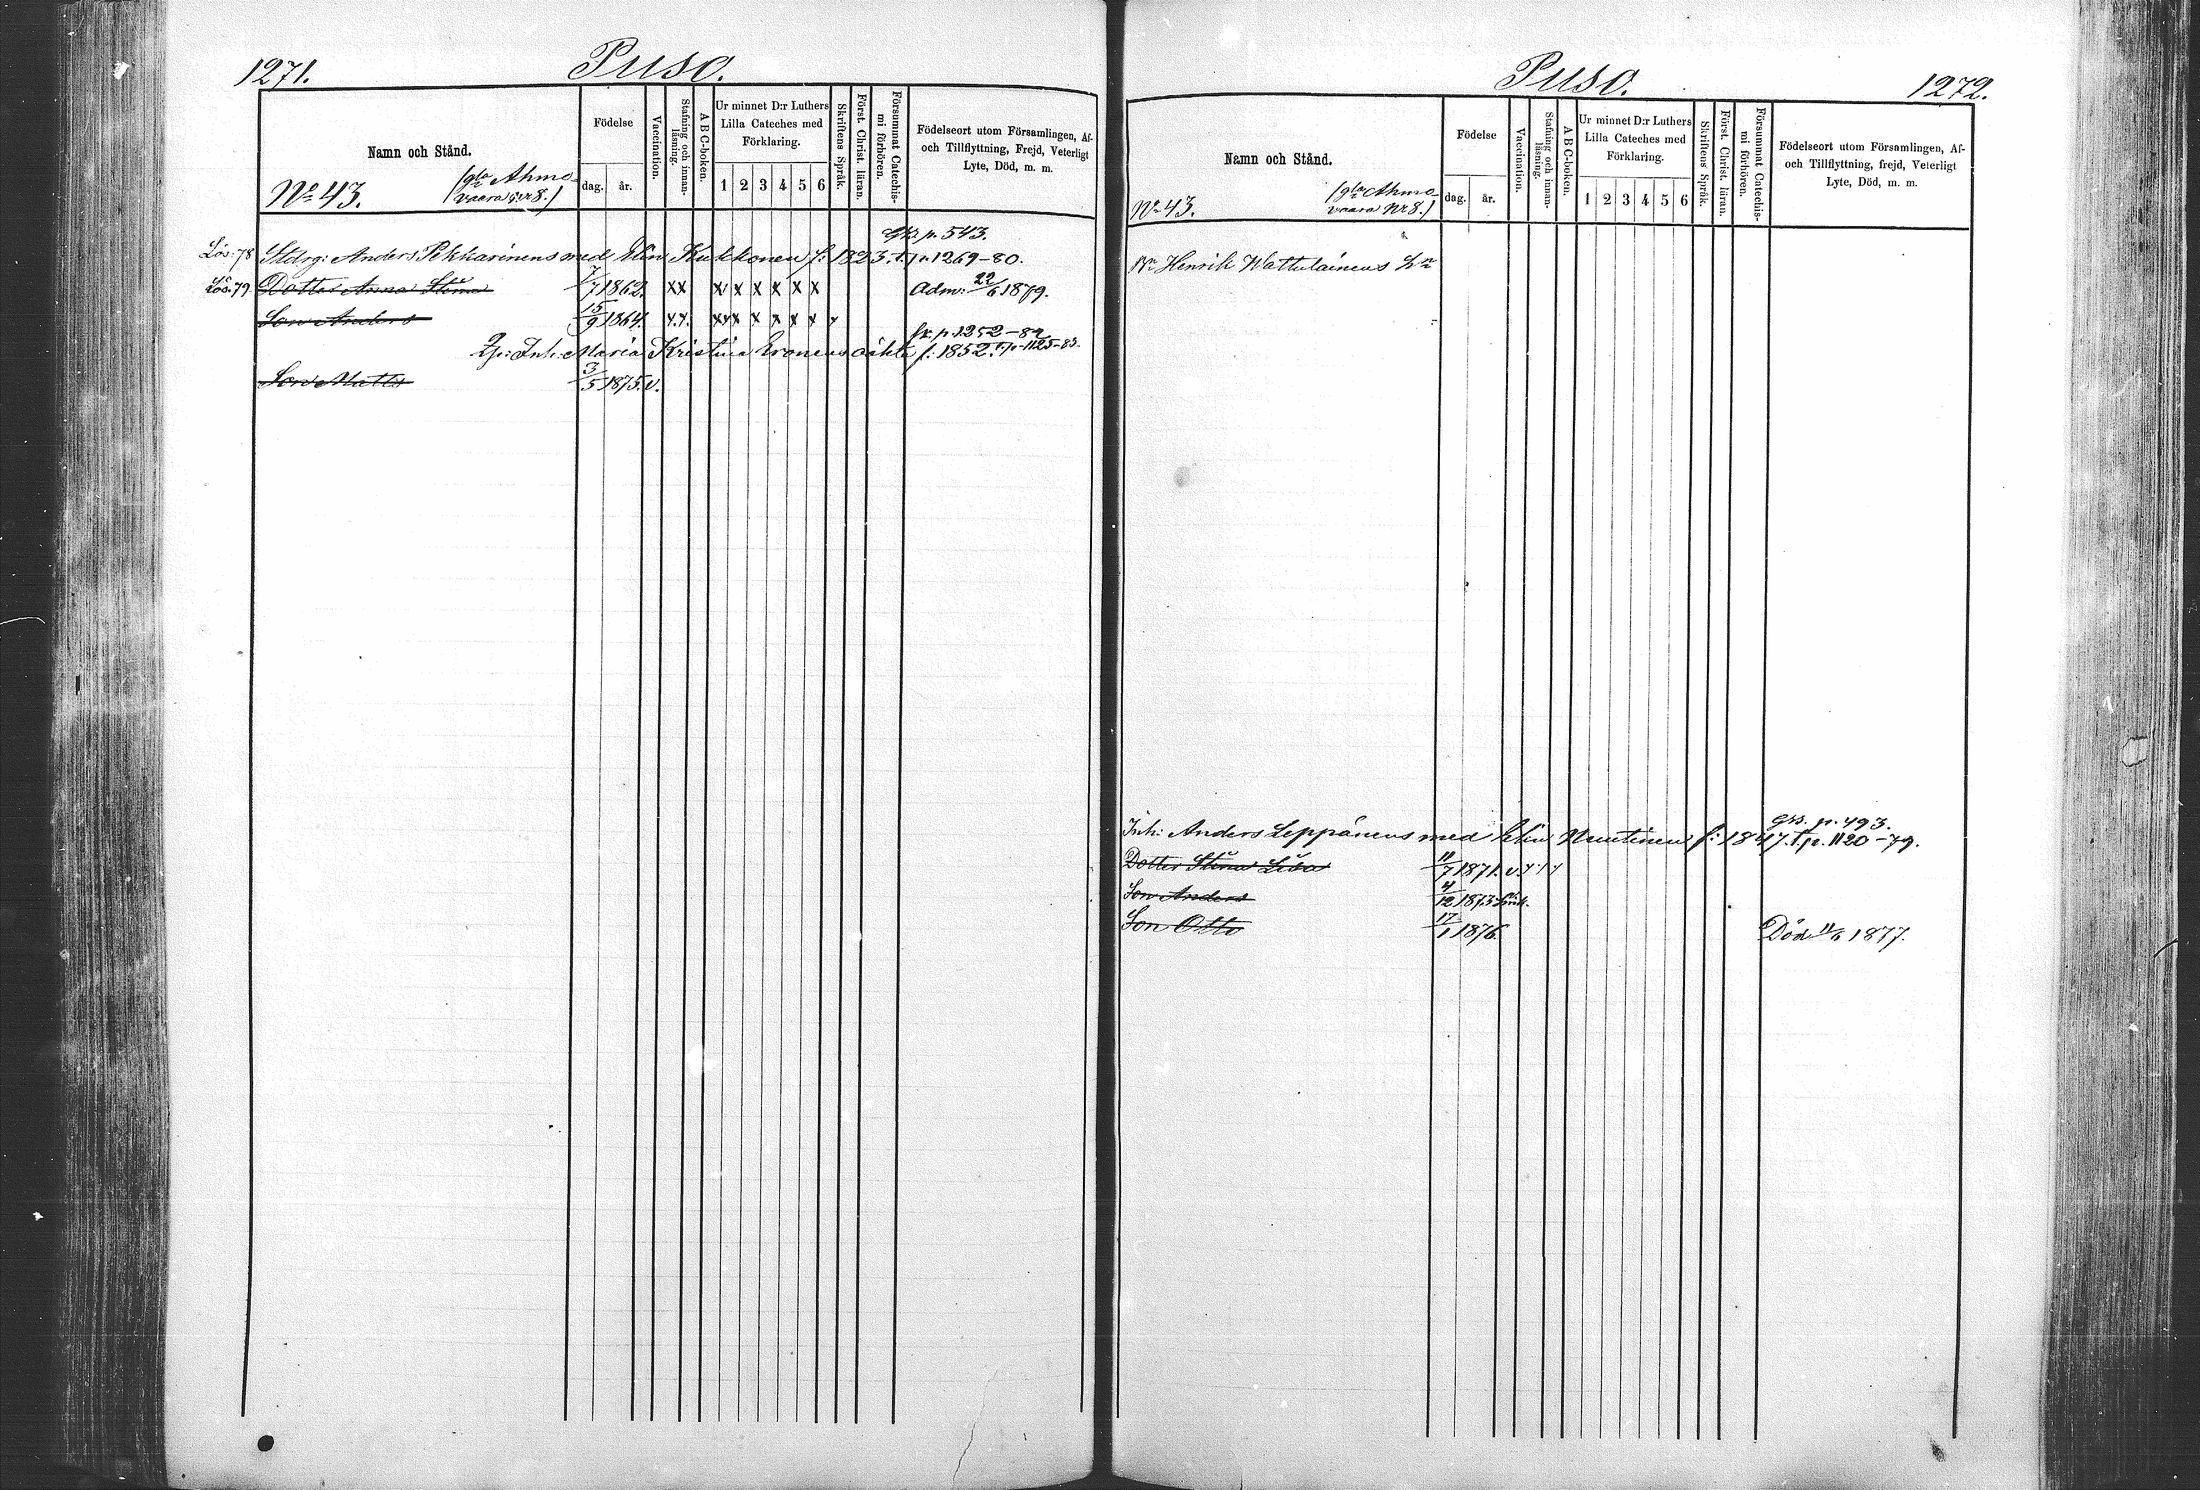 1271.
Puso.
Namn och Stånd.
Födelse
dag.
år.
Vaccination.
Stafning och innan-
läsning.
A B C-boken.
Ur minnet D:r Luthers
Lilla Cateches med
Förklaring.
1 2 3 4 5 6
Skriftens Språk.
Först. Christ. läran.
Försummat Catechis-
mi förhören.
Födelseort utom Församlingen, Af-
och Tillflyttning, Frejd, Veterligt
Lyte, Död, m. m.
No 43.
(gla Ahmo-
vaara Nr 8.)
Gks. p. 543.
Lös. 78 Stdrg: Anders Pekkarinens med Elin Kukkonen f: 1823. t. p. 1269-80.
Lös. 79 Dotter Anna Stina 7/7 1862. xx x x x x x x Adm: 22/6 1879.
Son Anders 15/9 1864. x.x. xxx x x x x x
fr. p. 1252-82
Inh: Maria Kristina Eronens oäkta f: 1852. t. p. 1125-83.
Son Matts 3/5 1875. v.
1272.
Puso.
Namn och Stånd.
Födelse
dag.
år.
Vaccination.
Stafning och innan-
läsning.
A B C-boken.
Ur minnet D:r Luthers
Lilla Cateches med
Förklaring.
1 2 3 4 5 6
Skriftens Språk.
Först. Christ. läran.
Försummat Catechis-
mi förhören.
Födelseort utom Församlingen, Af-
och Tillflyttning, frejd, Veterligt
Lyte, Död, m. m.
No 43.
(gla Ahmo-
vaara Nr 8.)
Bn Henrik Wattulainens
Gks. p. 493.
Inh: Anders Leppänens med Elin Nuutinen f: 1847. t. p. 1120-79.
Dotter Stina Lisa 11/7 1871. v.
Son Anders 4/12 1873
Son Otto 17/1 1876. Död 11/6 1877.